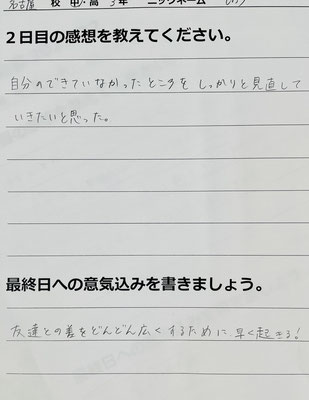 名古屋 校 中・高 3年 ニックネーム
2日目の感想を教えてください。
自分のできていなかったところをしっかりと見直して
いきたいと思った。
最終日への意気込みを書きましょう。
友達との差をどんどん広くするために早く起きる!